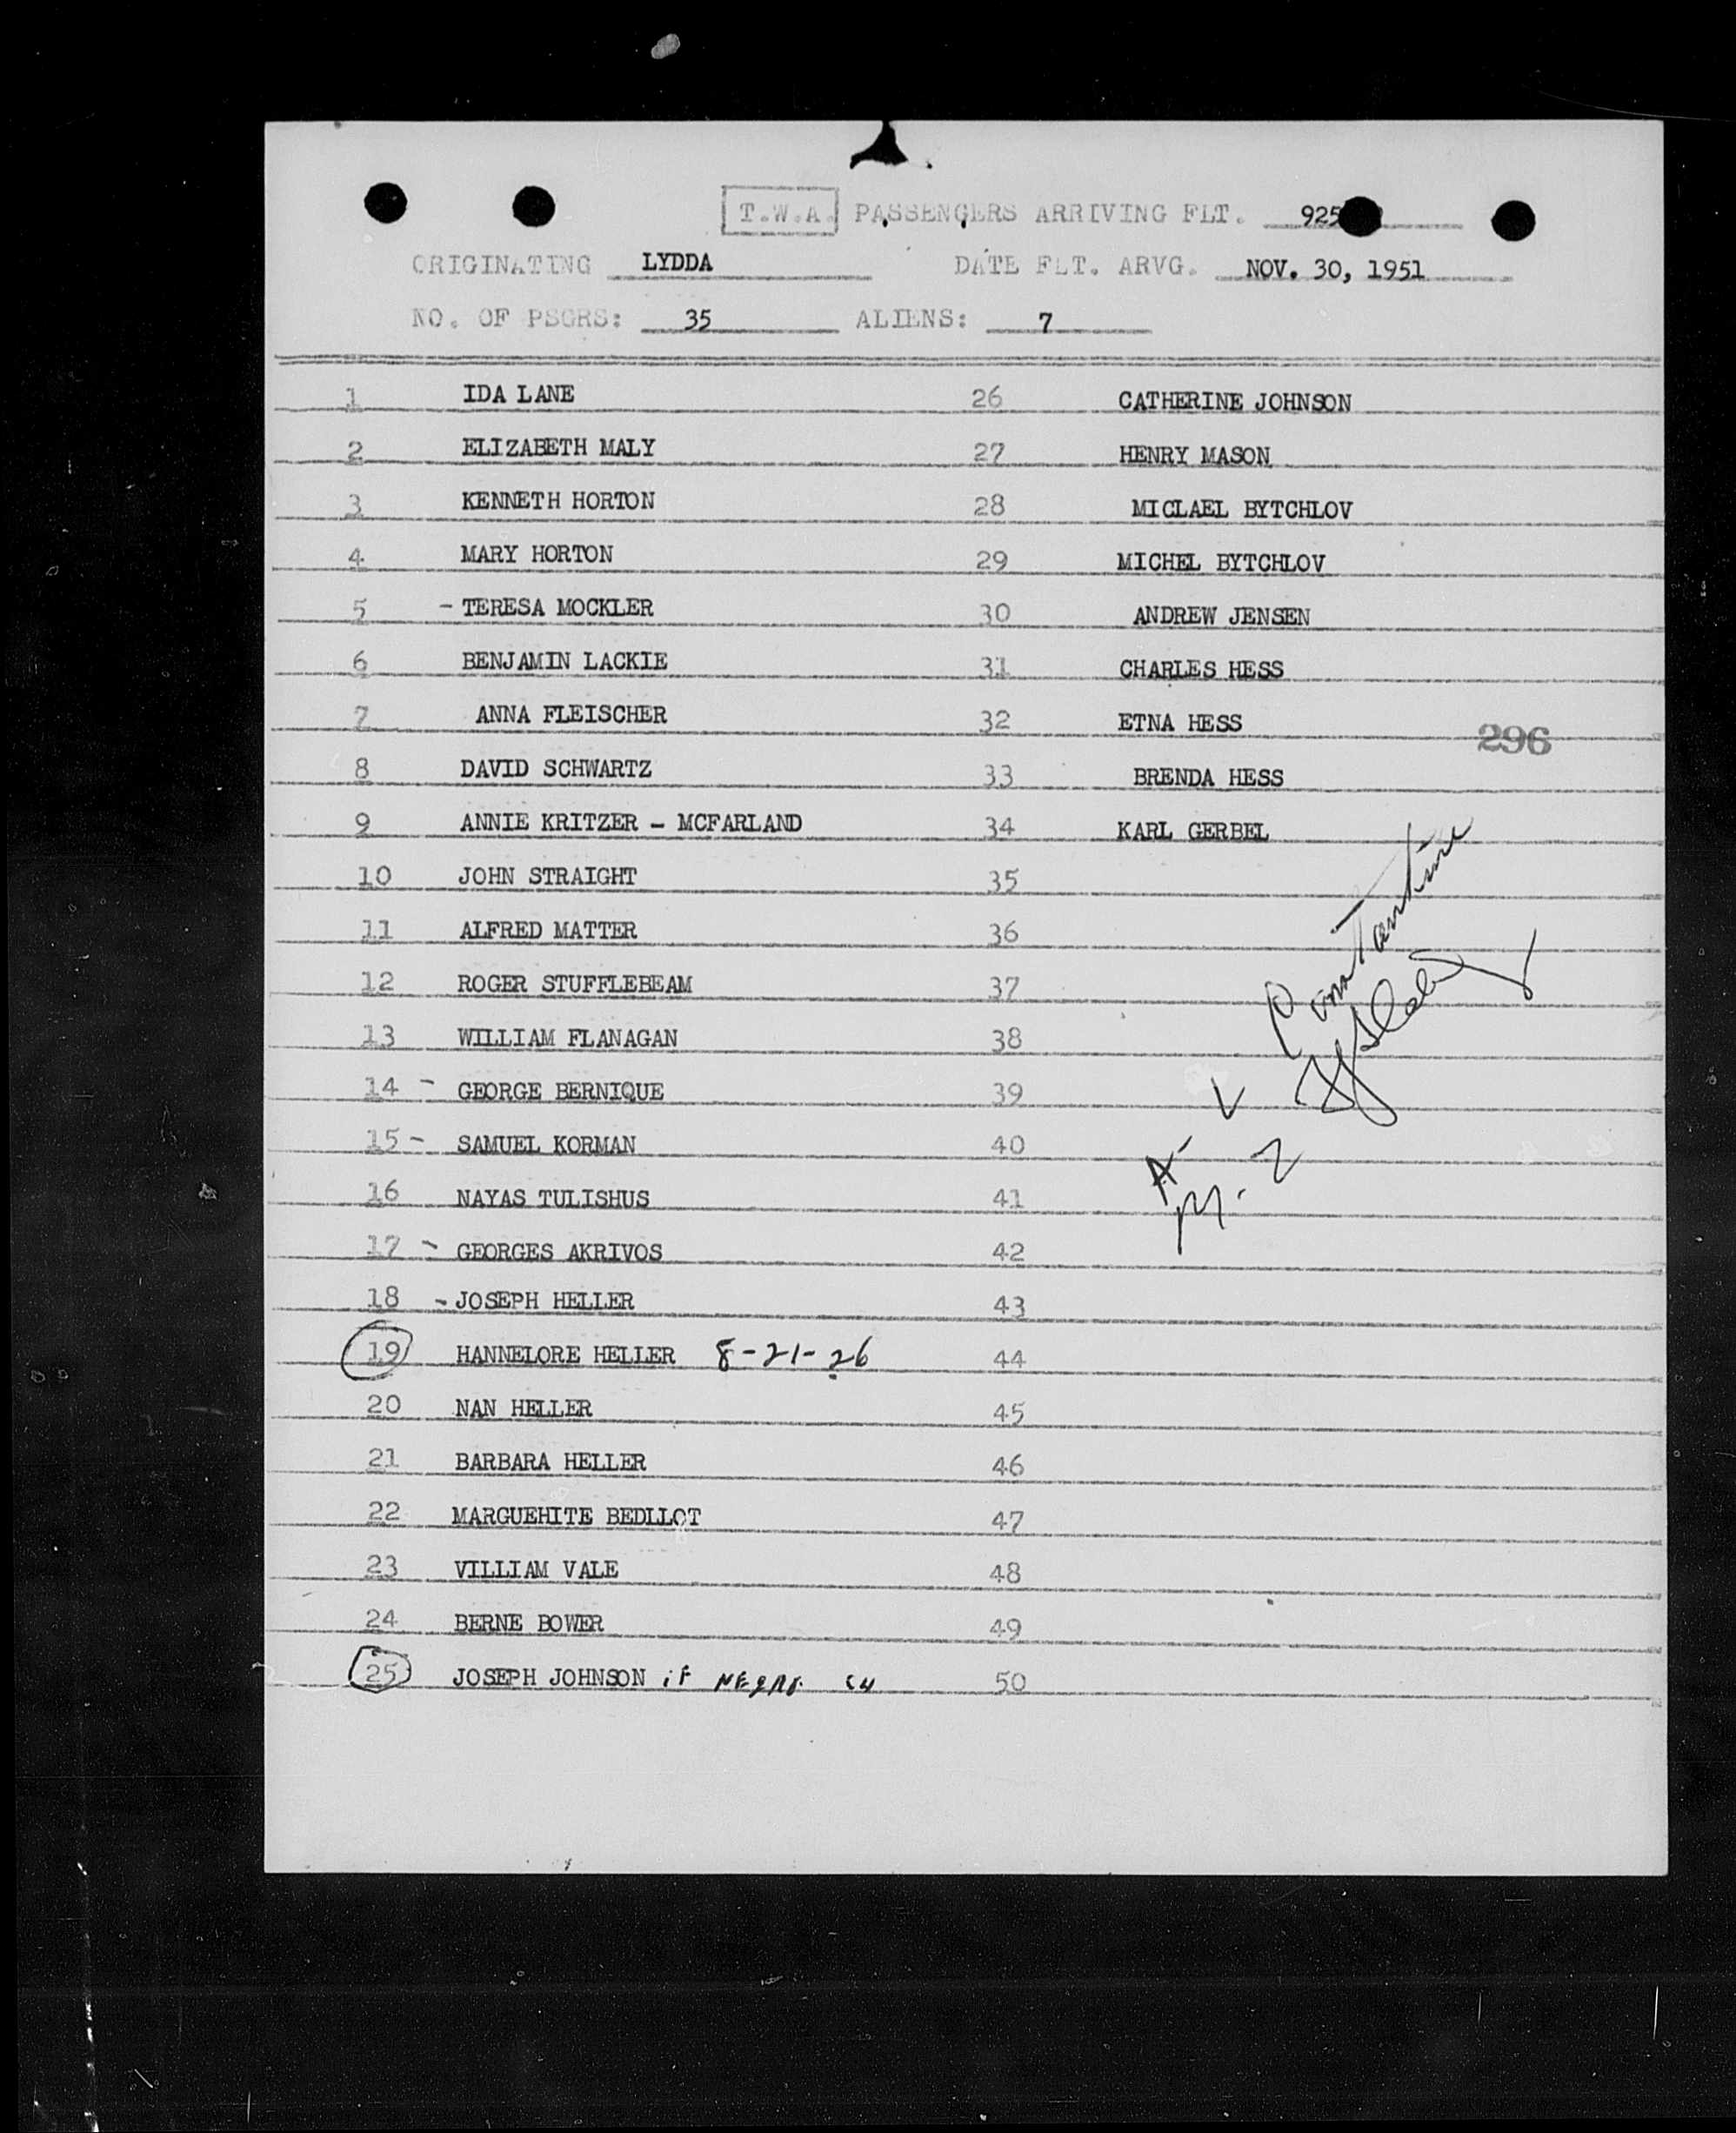 T.W.A. PASSENGERS ARRIVING FLT. 925
ORIGINATING LYDDA DATE FLT. ARVG. NOV. 30, 1951
NO. OF PSGRS: 35 ALIENS: 7
1 IDA LANE
2 ELIZABETH MALY
3 KENNETH HORTON
4 MARY HORTON
5 - TERESA MOCKLER
6 BENJAMIN LACKIE
7 ANNA FLEISCHER
8 DAVID SCHWARTZ
9 ANNIE KRITZER - MCFARLAND
10 JOHN STRAIGHT
11 ALFRED MATTER
12 ROGER STUFFLEBEAM
13 WILLIAM FLANAGAN
14 - GEORGE BERNIQUE
15 - SAMUEL KORMAN
16 NAYAS TULISHUS
17 - GEORGES AKRIVOS
18 - JOSEPH HELLER
19 HANNELORE HELLER 8-21-26
20 NAN HELLER
21 BARBARA HELLER
22 MARGUEHITE BEDLLOT
23 VILLIAM VALE
24 BERNE BOWER
25 JOSEPH JOHNSON if
26 CATHERINE JOHNSON
27 HENRY MASON
28 MICLAEL BYTCHLOV
29 MICHEL BYTCHLOV
30 ANDREW JENSEN
31 CHARLES HESS
32 ETNA HESS
296
33 BRENDA HESS
34 KARL GERBEL
35
36
37
38
39
40
41
42
43
44
45
46
47
48
49
50
Constantine
A-
M-2